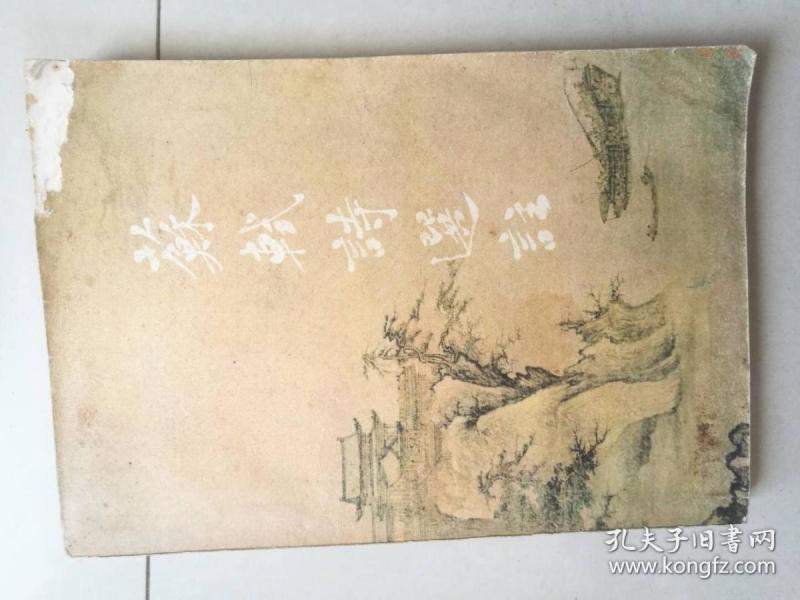 蘇軾詩選註
孔夫子旧書网
www.kongfz.com